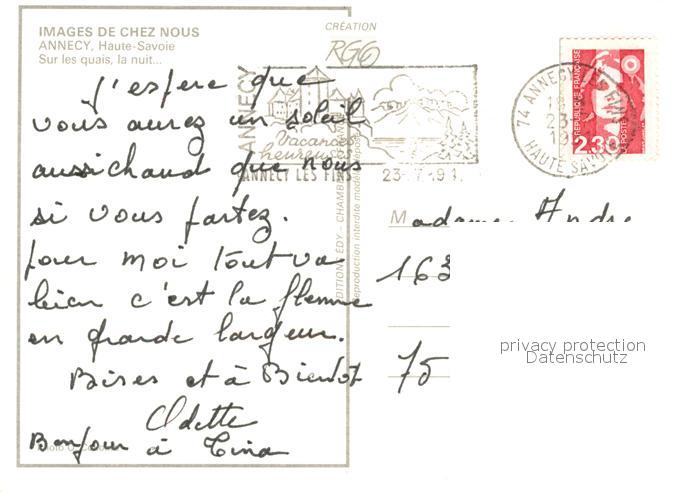 IMAGES DE CHEZ NOUS
ANNECY, Haute-Savoie
Sur les quais, la nuit...
J'espere que
vous aurez un soleil
aussi chaud que nous
si vous partez.
pour moi tout va
bien c'est la flemme
en grande largeur.
Bises et à Bientot
Odette
Bonjour à Tina
CRÉATION
RGO
ANNECY
Vacances
heureuses
ANNECY LES FINS
23 - 7
74 ANNECY LES FINS
23
HAUTE SAVOIE
REPUBLIQUE FRANÇAISE
LA POSTE
2.30
Madame Andre
163
75
privacy protection
Datenschutz
reproduction interdite